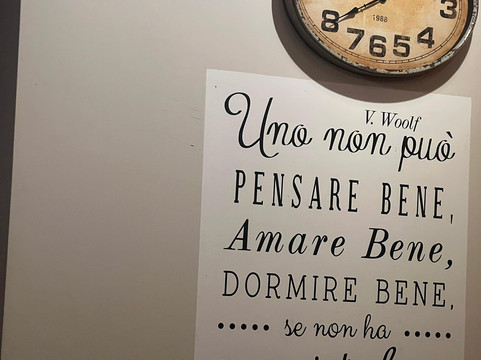 8 7 6 5 4 3
1988
V. Woolf
Uno non può
PENSARE BENE,
Amare Bene,
DORMIRE BENE,
..... se non ha .....